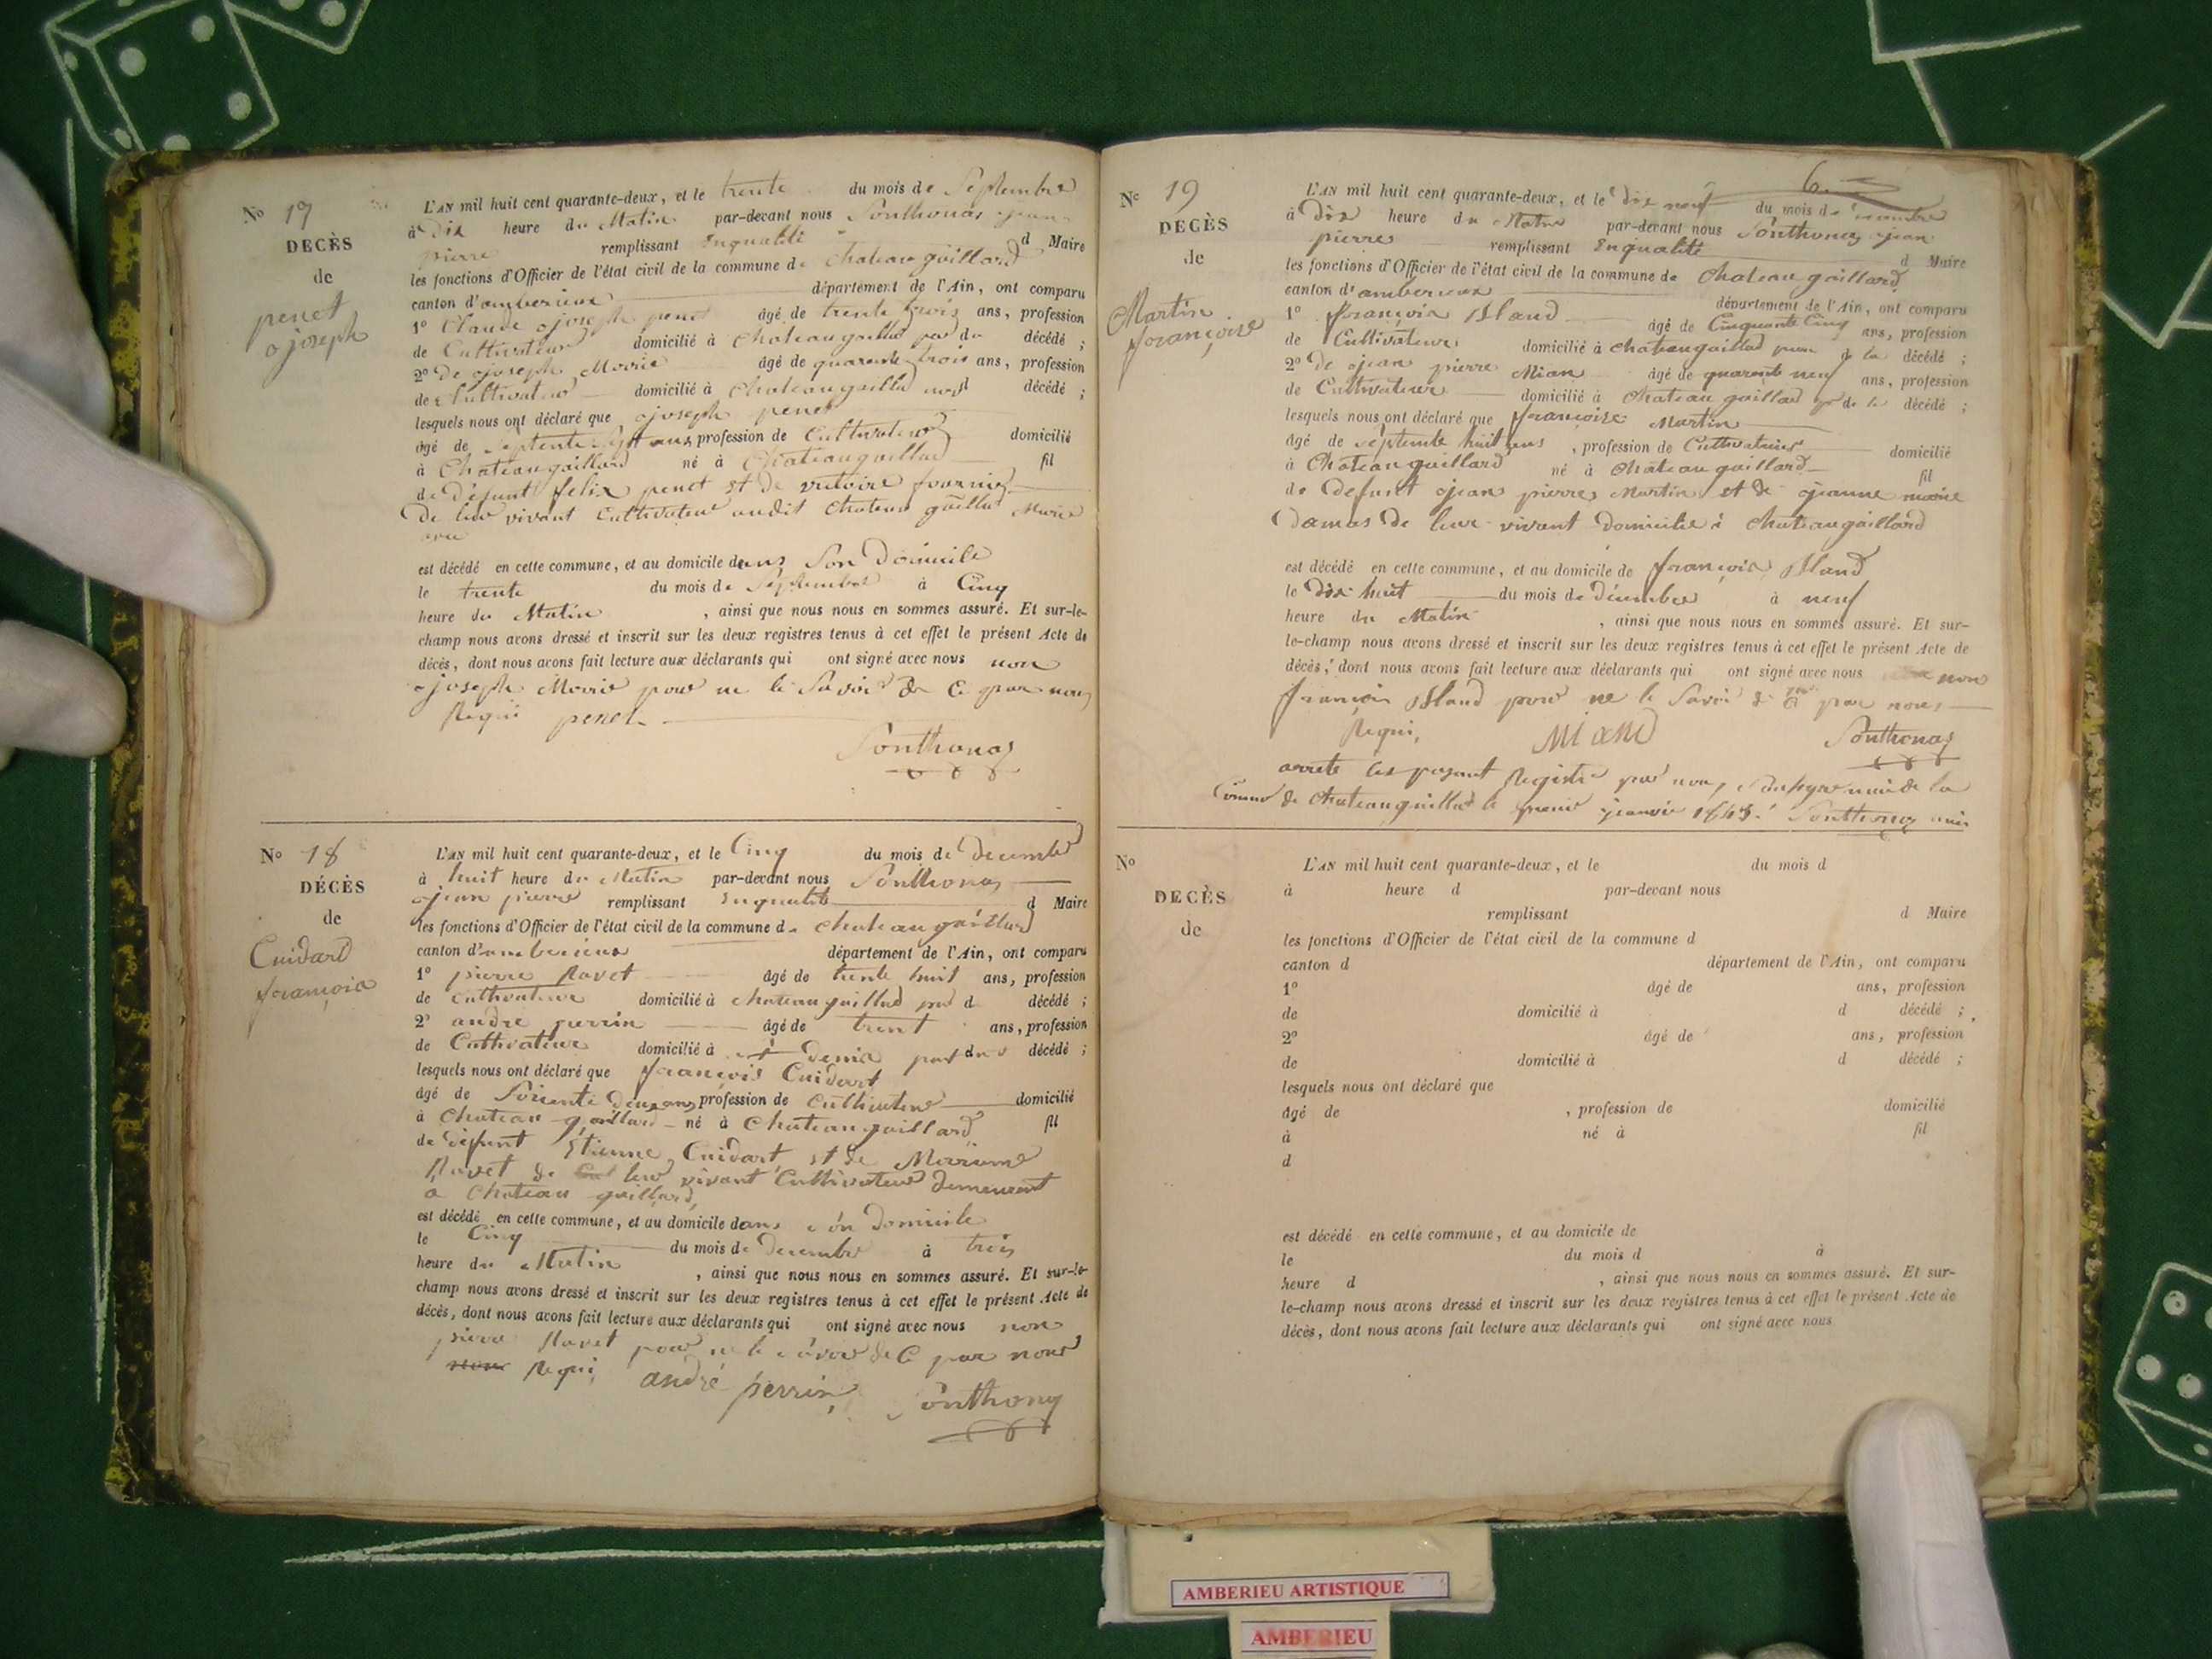 No 17
DECÈS
de
penet
joseph
L'AN mil huit cent quarante-deux, et le trente du mois de Septembre
à Dix heure du Matin par-devant nous Ponthonas jean
pierre remplissant Enqualité d Maire
les fonctions d'Officier de l'état civil de la commune de Chateaugaillard
canton d'amberieux département de l'Ain, ont comparu
1º Claude joseph penet âgé de trente trois ans, profession
de Cultivateur domicilié à Chateaugaillad du décédé ;
2º De joseph Moirie âgé de quarante trois ans, profession
de Cultivateur domicilié à Chateaugaillad décédé ;
lesquels nous ont déclaré que joseph penet
âgé de septente sept ans profession de Cultivateur domicilié
à Chateaugaillard né à Chateaugaillad fil
de défunt felix penet et de victoire fournier
De leur vivant Cultivateur audit Chateau gaillad
est décédé en cette commune, et au domicile dans Son Domicile
le trente du mois de Septembre à Cinq
heure du Matin , ainsi que nous nous en sommes assuré. Et sur-le-
champ nous avons dressé et inscrit sur les deux registres tenus à cet effet le présent Acte de
décès, dont nous avons fait lecture aux déclarants qui ont signé avec nous non
joseph Moirie pour ne le Savoir de Ce par nous
Requi penet
Ponthonas
No 18
DÉCÈS
de
Cuidard
françois
L'AN mil huit cent quarante-deux, et le Cinq du mois de Decembre
à huit heure du Matin par-devant nous Ponthonas
jean pierre remplissant Enqualité d Maire
les fonctions d'Officier de l'état civil de la commune de Chateaugaillard
canton d'amberieux département de l'Ain, ont comparu
1º pierre Ravet âgé de trente huit ans, profession
de Cultivateur domicilié à Chateaugaillad d décédé ;
2º andre perrin âgé de trent ans, profession
de Cultivateur domicilié à st denis du décédé ;
lesquels nous ont déclaré que françois Cuidart
âgé de Soisente deux ans profession de Cultivateur domicilié
à Chateau gaillard né à Chateaugaillard fil
de défunt Etienne Cuidart et de
Ravet de leur vivant Cultivateur demeurant
a Chateau gaillard
est décédé en cette commune, et au domicile dans son Domicile
le Cinq du mois de Decembre à trois
heure du Matin , ainsi que nous nous en sommes assuré. Et sur-le-
champ nous avons dressé et inscrit sur les deux registres tenus à cet effet le présent Acte de
décès, dont nous avons fait lecture aux déclarants qui ont signé avec nous non
piere Ravet pour ne le savoir de Ce par nous
Requi andré perrin Ponthonas
6
No 19
DECÈS
de
Martin
françoise
L'AN mil huit cent quarante-deux, et le dix neuf du mois de
à Dix heure du Matin par-devant nous Ponthonas jean
pierre remplissant Enqualité d Maire
les fonctions d'Officier de l'état civil de la commune de Chateaugaillard
canton d'amberieux
département de l'Ain, ont comparu
1º françois Bland âgé de Cinquante Cinq ans, profession
de Cultivateur domicilié à Chateaugaillad de la décédé ;
2º De jean pierre Mian âgé de quarente neuf ans, profession
de Cultivateur domicilié à Chateau gaillard de la décédé ;
lesquels nous ont déclaré que françoise Martin
âgé de septente huit ans , profession de Cultivateur domicilié
à Chateau gaillard né à Chateau gaillard fil
de Defunt jean pierre Martin et de jeanne marie
Damas De leur vivant Domicilié à Chateaugaillard
est décédé en cette commune, et au domicile de françois Bland
le Dix huit du mois de Décembre à neuf
heure du Matin , ainsi que nous nous en sommes assuré. Et sur-
le-champ nous avons dressé et inscrit sur les deux registres tenus à cet effet le présent Acte de
décès, dont nous avons fait lecture aux déclarants qui ont signé avec nous non
françois Bland pour ne le Savoir de Ce par nous
Requi, MIAN Ponthonas
arrete le present Registre par nous, maire de la
Comune de Chateaugaillad le janvier 1843. Ponthonas maire
No
DECÈS
de
L'AN mil huit cent quarante-deux, et le du mois d
à heure d par-devant nous
remplissant d Maire
les fonctions d'Officier de l'état civil de la commune d
canton d département de l'Ain, ont comparu
1º âgé de ans, profession
de domicilié à d décédé ;
2º âgé de ans, profession
de domicilié à d décédé ;
lesquels nous ont déclaré que
âgé de , profession de domicilié
à né à fil
d
est décédé en cette commune, et au domicile de
le du mois d à
heure d , ainsi que nous nous en sommes assuré. Et sur-
le-champ nous avons dressé et inscrit sur les deux registres tenus à cet effet le présent Acte de
décès, dont nous avons fait lecture aux déclarants qui ont signé avec nous
AMBERIEU ARTISTIQUE
AMBERIEU